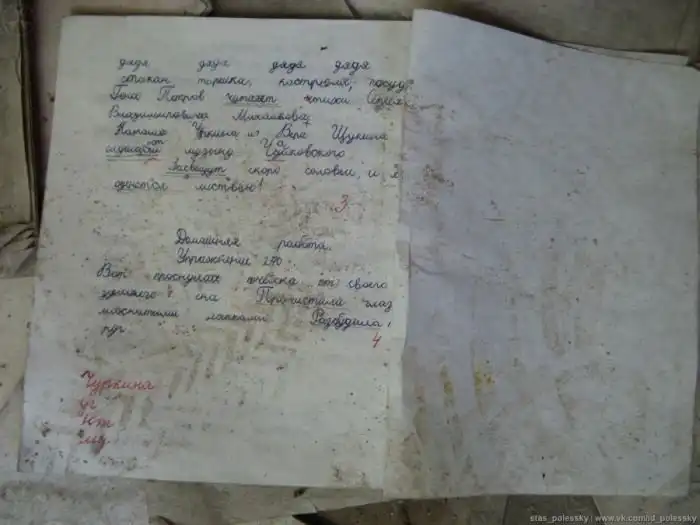 дядя дядя дядя дядя
стакан тарелка, кастрюля, посуд
Гоша Петров читает стихи Сергея
Владимировича Михалкова.
Наташа Чуркина и Вера Щукина
слушают музыку Чайковского
Засвищут скоро соловьи, и л
оденется листвою!
3
Домашняя работа.
Упражнение 290.
Вот проснулась пчёлка от своего
зимнего сна Прочистила глаз
мохнатыми лапками Разбудила
4
Чуркина
stas_polessky | www.vk.com/id_polessky